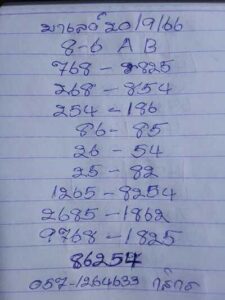 มาเลย์ 20/9/66
8-6 A B
768 - 2825
268 - 854
254 - 186
86 - 85
26 - 54
25 - 82
1265 - 8254
2685 - 1862
9768 - 1825
86254
057-1264633